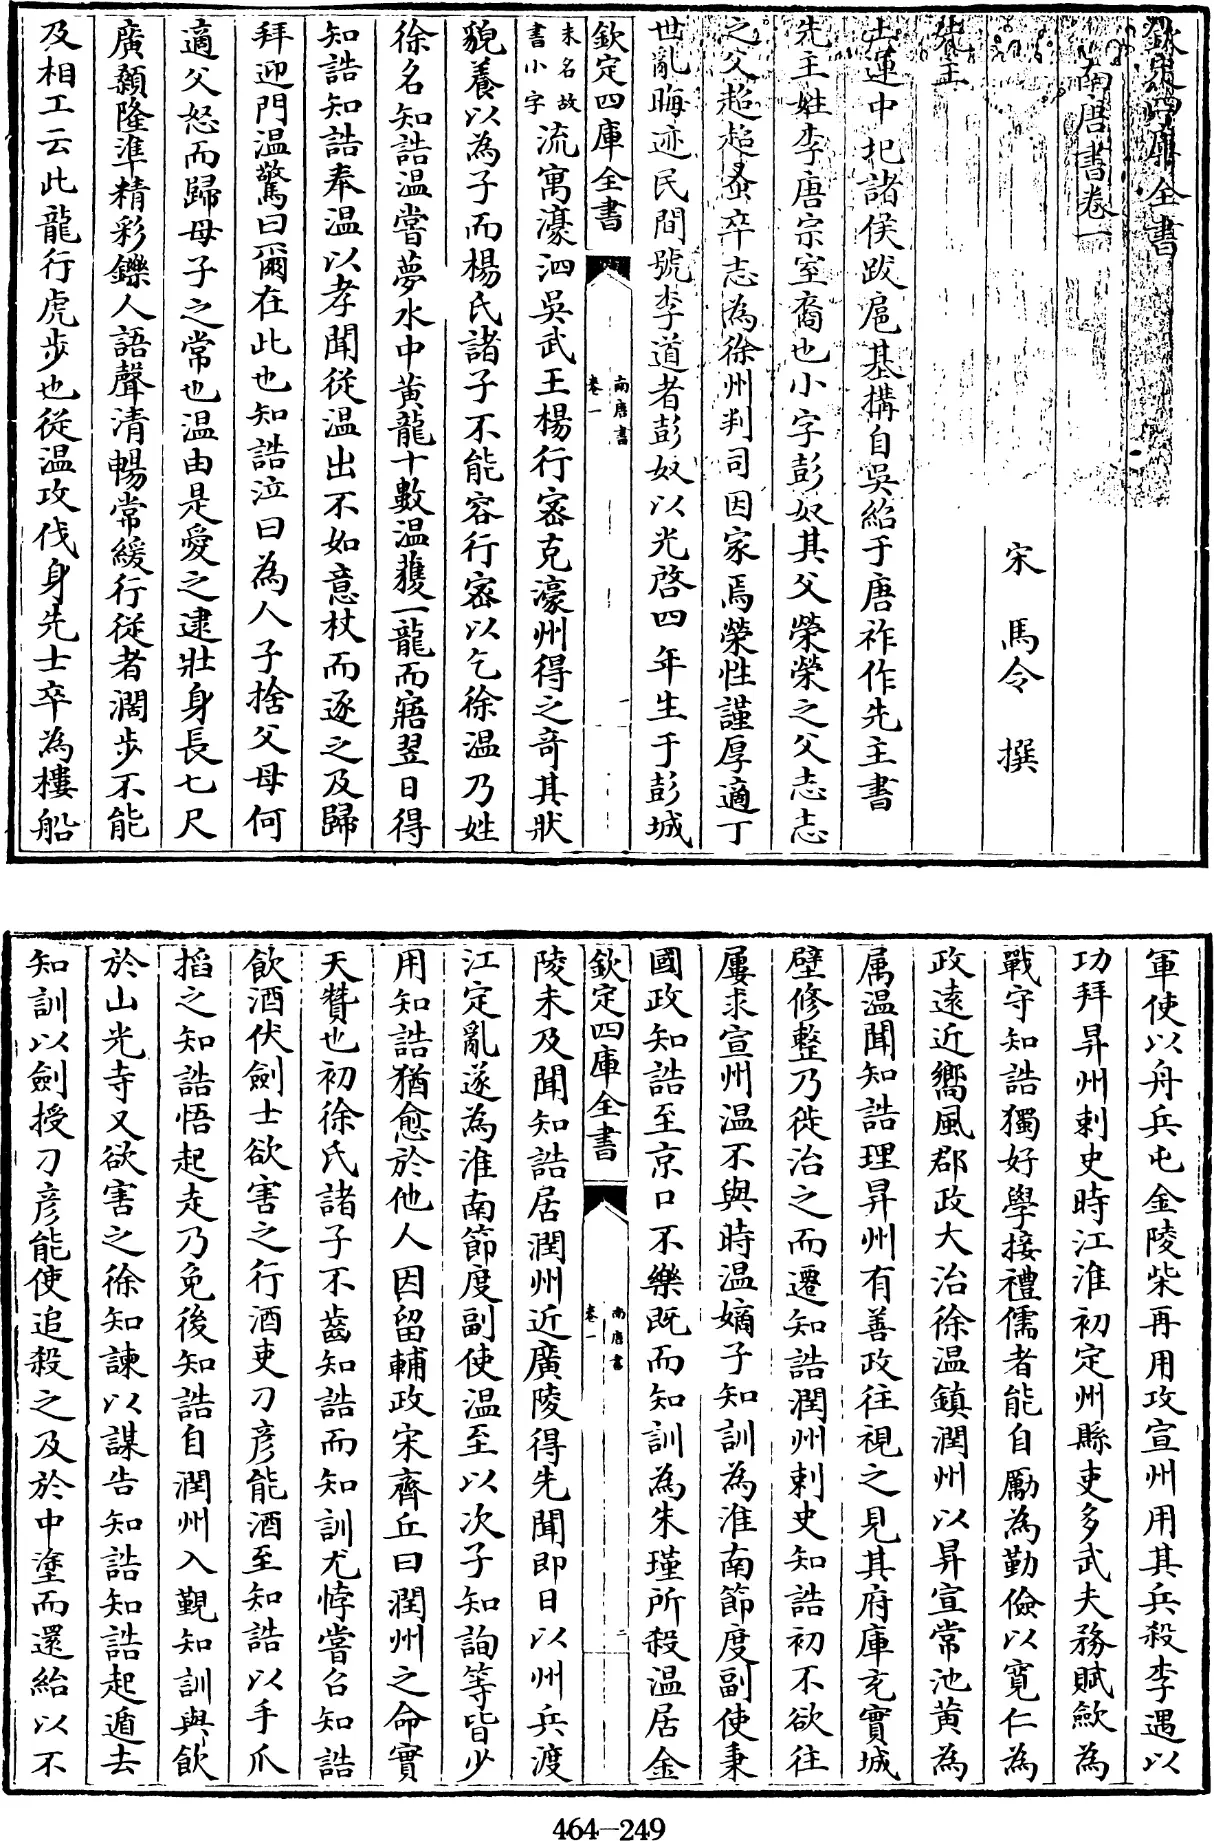 欽定四庫全書
南唐書卷一
宋 馬令 撰
先主
土運中圯諸侯跋扈基構自吳紹于唐祚作先主書
先主姓李唐宗室裔也小字彭奴其父榮榮之父志志
之父超超蚤卒志為徐州判司因家焉榮性謹厚適丁
世亂晦迹民間號李道者彭奴以光啓四年生于彭城
欽定四庫全書
南唐書
卷一
一
未名故
書小字
流寓濠泗吳武王楊行密克濠州得之竒其狀
貌養以為子而楊氏諸子不能容行密以乞徐溫乃姓
徐名知誥溫嘗夢水中黃龍十數溫獲一龍而寤翌日得
知誥知誥奉溫以孝聞從溫出不如意杖而逐之及歸
拜迎門溫驚曰爾在此也知誥泣曰為人子捨父母何
適父怒而歸母子之常也溫由是愛之逮壯身長七尺
廣顙隆準精彩鑠人語聲清暢常緩行從者濶步不能
及相工云此龍行虎步也從溫攻伐身先士卒為樓船
軍使以舟兵屯金陵柴再用攻宣州用其兵殺李遇以
功拜昇州刺史時江淮初定州縣吏多武夫務賦歛為
戰守知誥獨好學接禮儒者能自勵為勤儉以寬仁為
政遠近嚮風郡政大治徐溫鎮潤州以昇宣常池黃為
属溫聞知誥理昇州有善政往視之見其府庫充實城
壁修整乃徙治之而遷知誥潤州刺史知誥初不欲往
屢求宣州溫不與時溫嫡子知訓為淮南節度副使秉
國政知誥至京口不樂既而知訓為朱瑾所殺溫居金
欽定四庫全書
南唐書
卷一
二
陵未及聞知誥居潤州近廣陵得先聞即日以州兵渡
江定亂遂為淮南節度副使溫至以次子知詢等皆少
用知誥猶愈於他人因留輔政宋齊丘曰潤州之命實
天贊也初徐氏諸子不齒知誥而知訓尤悖嘗召知誥
飲酒伏劍士欲害之行酒吏刁彥能酒至知誥以手爪
搯之知誥悟起走乃免後知誥自潤州入覲知訓與飲
於山光寺又欲害之徐知諫以謀告知誥知誥起遁去
知訓以劍授刁彥能使追殺之及於中塗而還紿以不
464-249